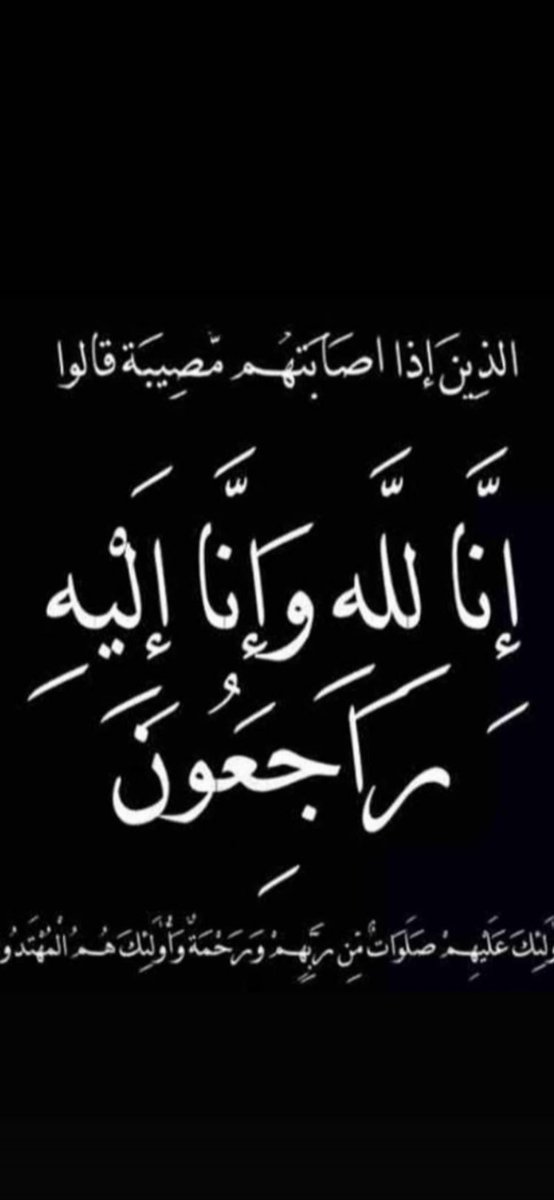 الذِينَ إِذَا اصَابَتهُم مَّصِيبَة قالوا
إِنَّا لِلَّه وَإِنَّا إِلَيْهِ
رَاجِعُونَ
أُولَئِكَ عَلَيْهِمْ صَلَوَاتٌ مِّن رَّبِّهِمْ وَرَحْمَةٌ وَأُولَئِكَ هُمُ الْمُهْتَدُو